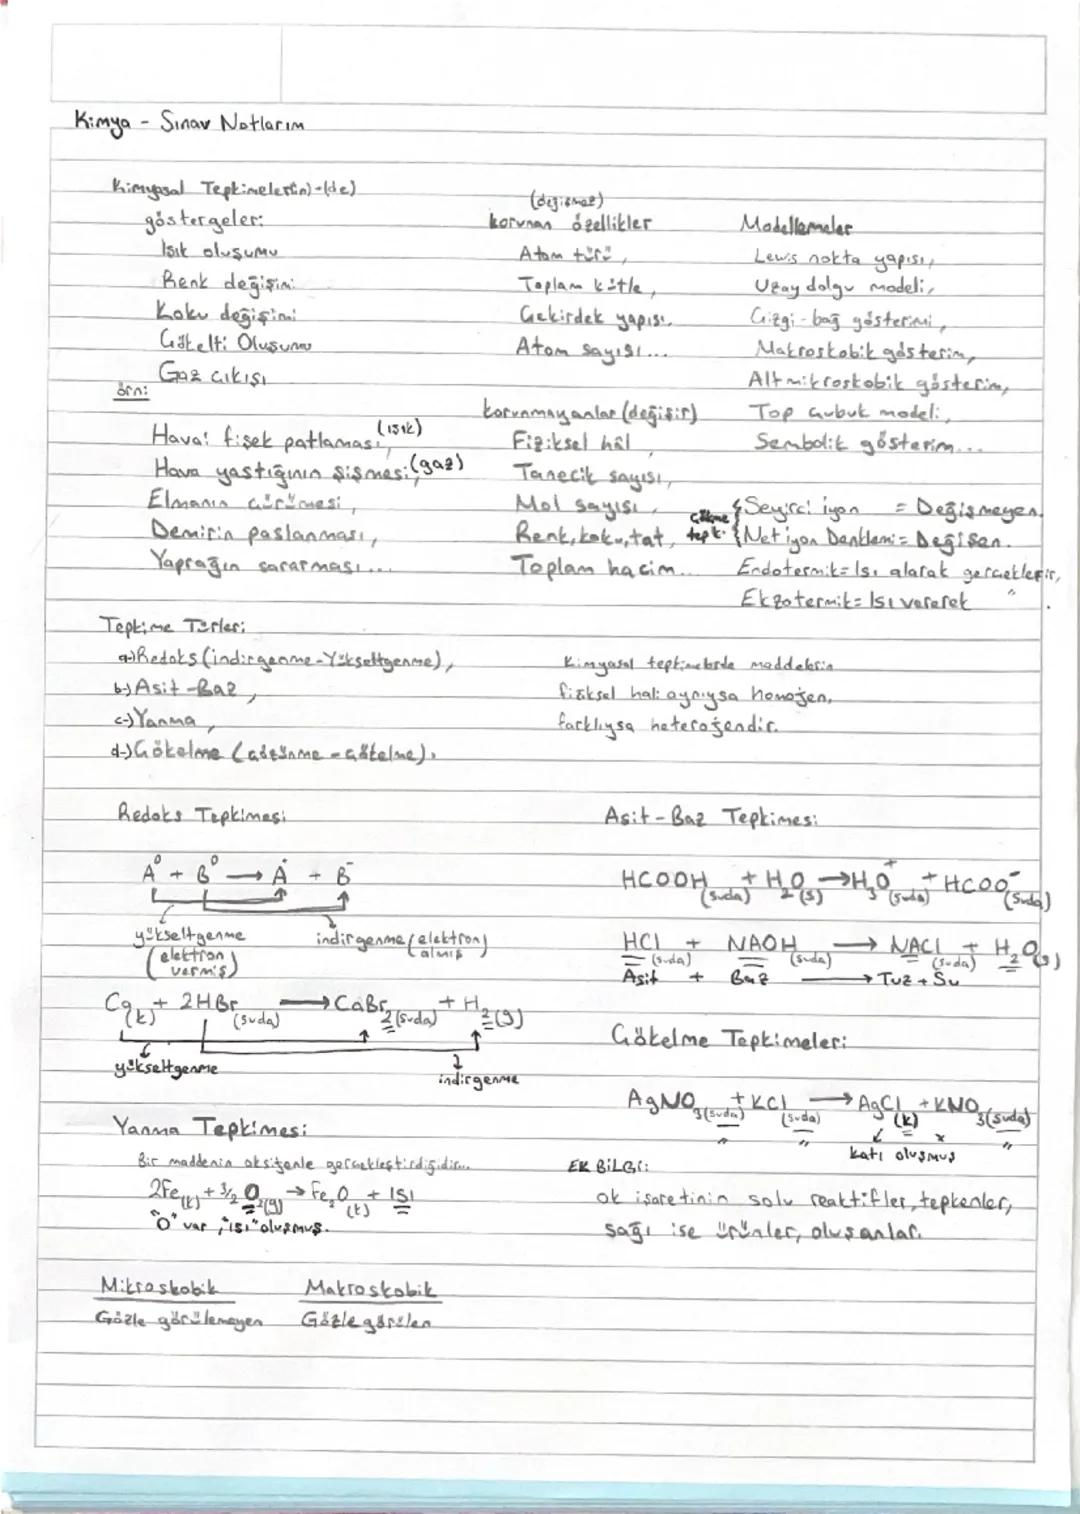 Kimya - Sınav Notlarım
Kimyasal Tepkimeler(in)-(de)
göstergeler:
Işık oluşumu
Renk değişimi
Koku değişimi
Çökelti Oluşumu
Gaz çıkışı
örn:
Havai fişek patlaması, (ışık)
Hava yastığının şişmesi, (gaz)
Elmanın çürümesi,
Demirin paslanması,
Yaprağın sararması...
(değişmez)
korunan özellikler
Atom türü,
Toplam kütle,
Çekirdek yapısı,
Atom sayısı...
korunmayanlar (değişir)
Fiziksel hâl,
Tanecik sayısı,
Mol sayısı,
Renk, koku, tat,
Toplam hacim...
Modellemeler
Lewis nokta yapısı,
Uzay dolgu modeli,
Çizgi-bağ gösterimi,
Makroskobik gösterim,
Altmikroskobik gösterim,
Top çubuk modeli,
Sembolik gösterim...
çökme tepk. { Seyirci iyon = Değişmeyen.
{ Net iyon Denklemi = Değişen.
Endotermik = Isı alarak gerçekleşir,
Ekzotermik = Isı vererek " .
Tepkime Türleri
a-) Redoks (indirgenme-Yükseltgenme),
b-) Asit-Baz,
c-) Yanma,
d-) Çökelme (çözünme-çökelme).
Kimyasal tepkimelerde maddelerin
fiziksel hali aynıysa homojen,
farklıysa heterojendir.
Redoks Tepkimesi
A⁰ + B⁰ → A⁺ + B⁻
yükseltgenme (elektron vermiş)
indirgenme (elektron almış)
Ca(k) + 2HBr(suda) → CaBr₂(suda) + H₂(g)
yükseltgenme
indirgenme
Yanma Tepkimesi
Bir maddenin oksijenle gerçekleştirdiğidir.
2Fe(k) + 3/2 O₂(g) → Fe₂O(k) + ISI
"O" var, "ısı" oluşmuş.
Mikroskobik
Gözle görülemeyen
Makroskobik
Gözle görülen
Asit-Baz Tepkimesi
HCOOH(suda) + H₂O(s) → H₃O⁺(suda) + HCOO⁻(suda)
HCl(suda) + NAOH(suda) → NACl(suda) + H₂O(s)
Asit + Baz → Tuz + Su
Çökelme Tepkimeleri
AgNO₃(suda) + KCl(suda) → AgCl(k) + KNO₃(suda)
" " x "
katı oluşmuş
EK BİLGİ:
ok işaretinin solu reaktifler, tepkenler,
sağı ise ürünler, oluşanlar.